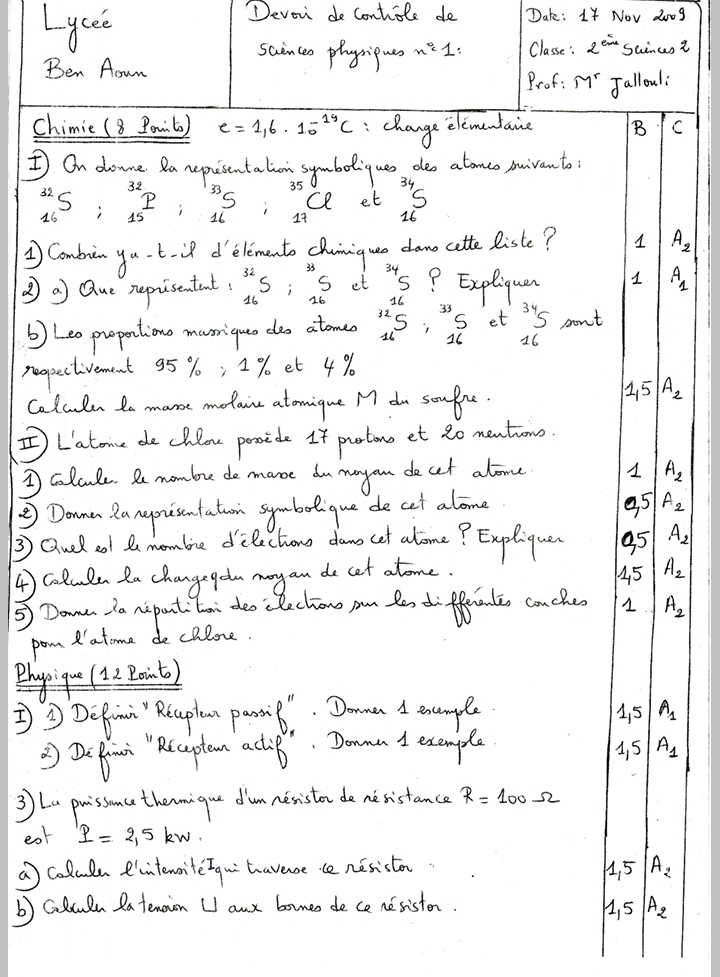 Lycée
Ben Aoun
Devoir de contrôle de
sciences physiques n° 1:
Date: 17 Nov 2009
Classe: 2ème Sciences 2
Prof: Mr Jallouli
Chimie (8 Points) e = 1,6 . 10⁻¹⁹C : charge élémentaire B C
I) On donne la représentation symboliques des atomes suivants :
³²₁₆S ; ³²₁₅P ; ³³₁₆S ; ³⁵₁₇Cl et ³⁴₁₆S
1) Combien y a-t-il d'éléments chimiques dans cette liste ? 1 A₂
2) a) Que représentent : ³²₁₆S ; ³³₁₆S et ³⁴₁₆S ? Expliquer 1 A₁
b) Les proportions massiques des atomes ³²₁₆S ; ³³₁₆S et ³⁴₁₆S sont
respectivement 95 % ; 1 % et 4 %
Calculer la masse molaire atomique M du soufre. 1,5 A₂
II) L'atome de chlore possède 17 protons et 20 neutrons.
1) Calculer le nombre de masse du noyau de cet atome. 1 A₂
2) Donner la représentation symbolique de cet atome 0,5 A₂
3) Quel est le nombre d'élections dans cet atome ? Expliquer 0,5 A₂
4) Calculer la charge q du noyau de cet atome. 1,5 A₂
5) Donner la répartition des électrons sur les différentes couches 1 A₂
pour l'atome de chlore.
Physique (12 Points)
I) 1) Définir "Récepteur passif". Donner 1 exemple. 1,5 A₁
2) Définir "Récepteur actif". Donner 1 exemple. 1,5 A₁
3) La puissance thermique d'un résistor de résistance R = 100 Ω
est P = 2,5 kw.
a) Calculer l'intensité I qui traverse ce résistor. 1,5 A₂
b) Calculer la tension U aux bornes de ce résistor. 1,5 A₂